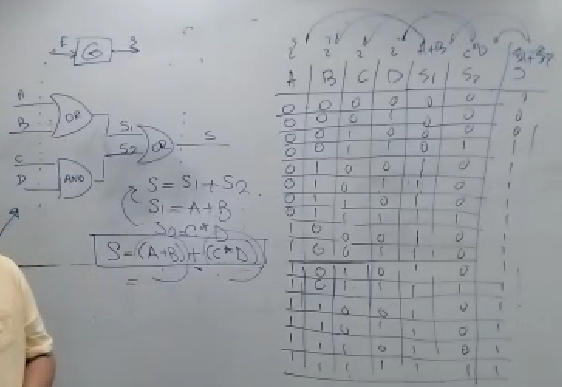 E G S
A
B OR S1
S2 OR S
C
D AND
S = S1 + S2
S1 = A + B
S2 = C * D
S = (A+B) + (C*D)
2 2 2 2 A+B C*D S1+S2
A B C D S1 S2 S
0 0 0 0 0 0
0 0 0 1 0 0 0
0 0 1 0 0 0 0
0 0 1 1 0 1 1
0 1 0 0 1 0 1
0 1 0 1 1 0 1
0 1 1 0 1 0 1
0 1 1 1 1 1 1
1 0
1 0 0 1 1 0 1
1 0 1 0 1 0 1
1 0 1 1 1 1 1
1 1 0 0 1
1 1 0 1 1 0 1
1 1 1 0 1 0 1
1 1 1 1 1 1 1